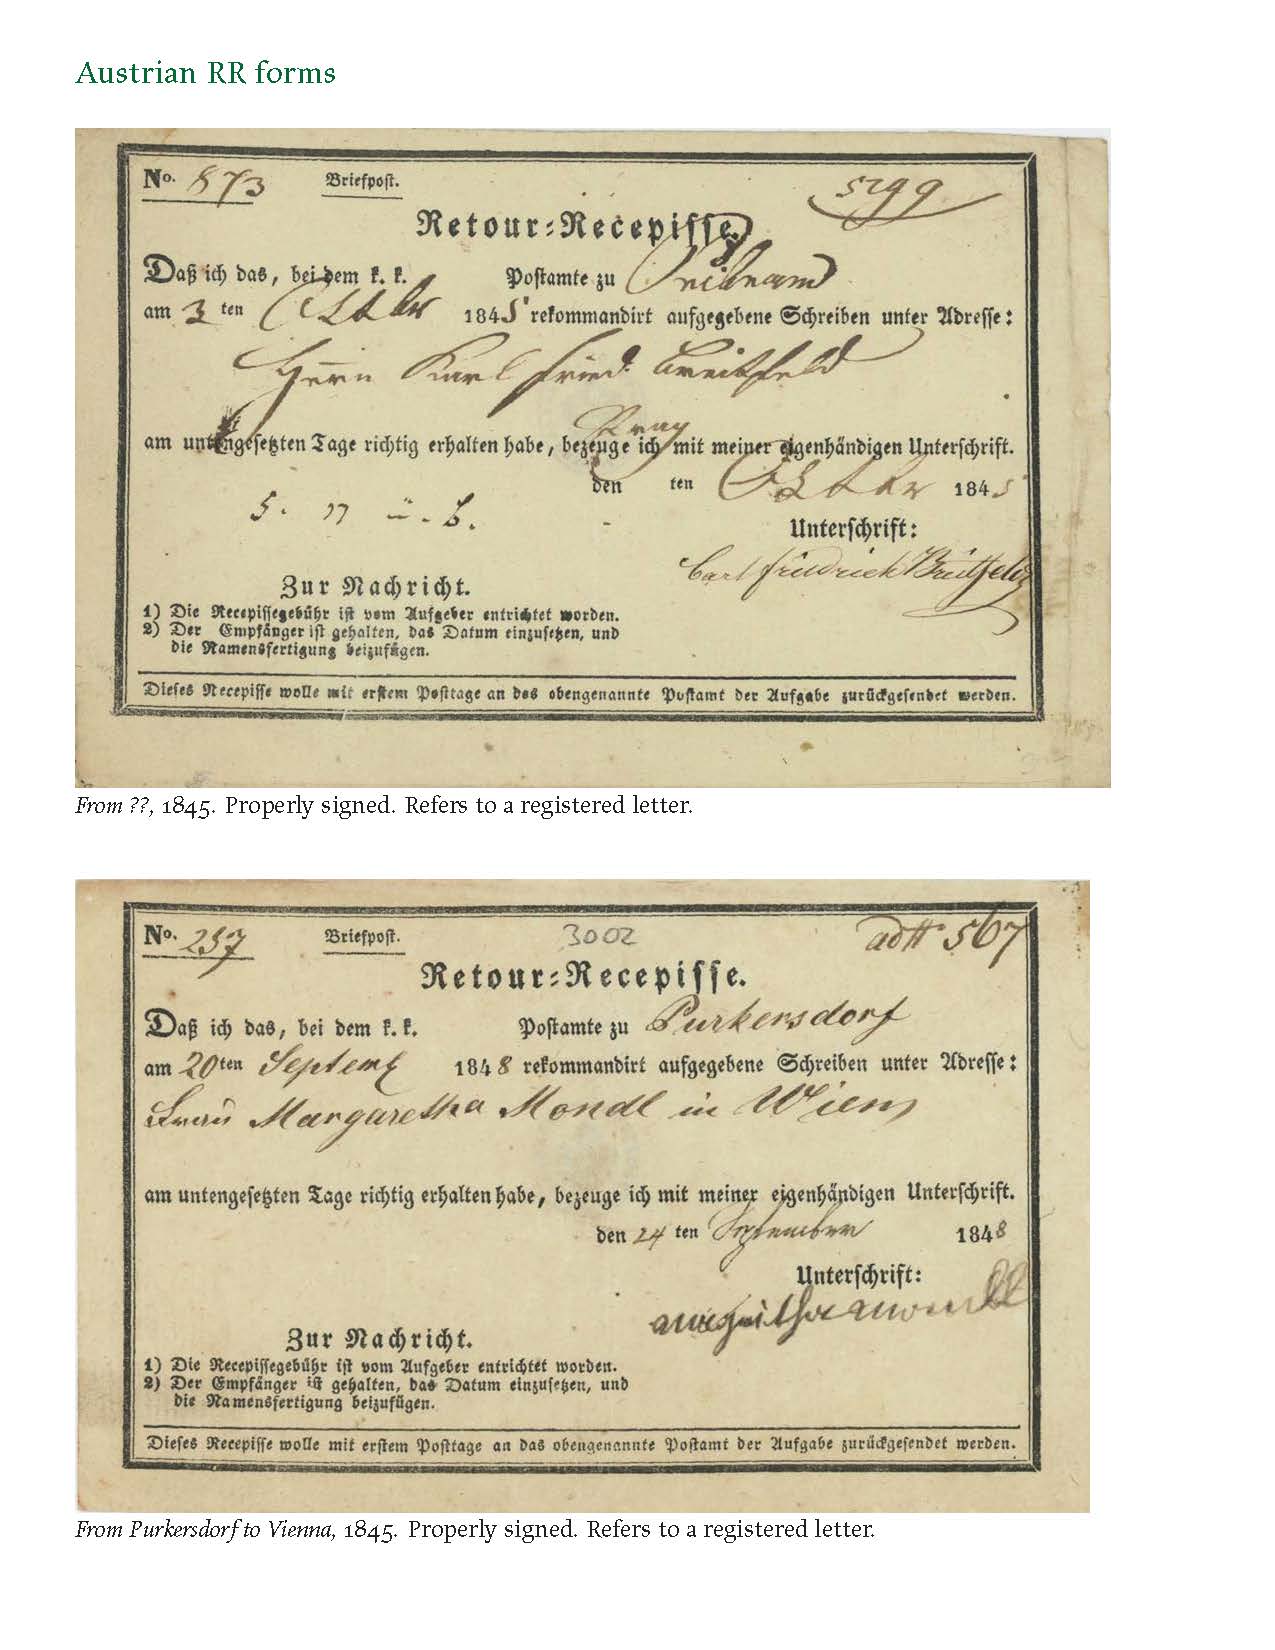 Austrian RR forms
No. 873 Briefpost. 5299
Retour=Recepisse.
Daß ich das, bei dem k. k. Postamte zu
am 3 ten 1845 rekommandirt aufgegebene Schreiben unter Adresse:
Herrn Karl Fried. Breitfeld
Prag
am untengesetzten Tage richtig erhalten habe, bezeuge ich mit meiner eigenhändigen Unterschrift.
den ten 1845
Unterschrift:
Carl Friedrich Breitfeld
Zur Nachricht.
1) Die Recepissegebühr ist vom Aufgeber entrichtet worden.
2) Der Empfänger ist gehalten, das Datum einzusetzen, und
die Namensfertigung beizufügen.
Dieses Recepisse wolle mit erstem Posttage an das obengenannte Postamt der Aufgabe zurückgesendet werden.
From ??, 1845. Properly signed. Refers to a registered letter.
No. 237 Briefpost. 3002 567
Retour=Recepisse.
Daß ich das, bei dem k. k. Postamte zu Purkersdorf
am 20ten 1848 rekommandirt aufgegebene Schreiben unter Adresse:
Frau Margaretha Mondl in Wien
am untengesetzten Tage richtig erhalten habe, bezeuge ich mit meiner eigenhändigen Unterschrift.
den 24 ten September 1848
Unterschrift:
Zur Nachricht.
1) Die Recepissegebühr ist vom Aufgeber entrichtet worden.
2) Der Empfänger ist gehalten, das Datum einzusetzen, und
die Namensfertigung beizufügen.
Dieses Recepisse wolle mit erstem Posttage an das obengenannte Postamt der Aufgabe zurückgesendet werden.
From Purkersdorf to Vienna, 1845. Properly signed. Refers to a registered letter.